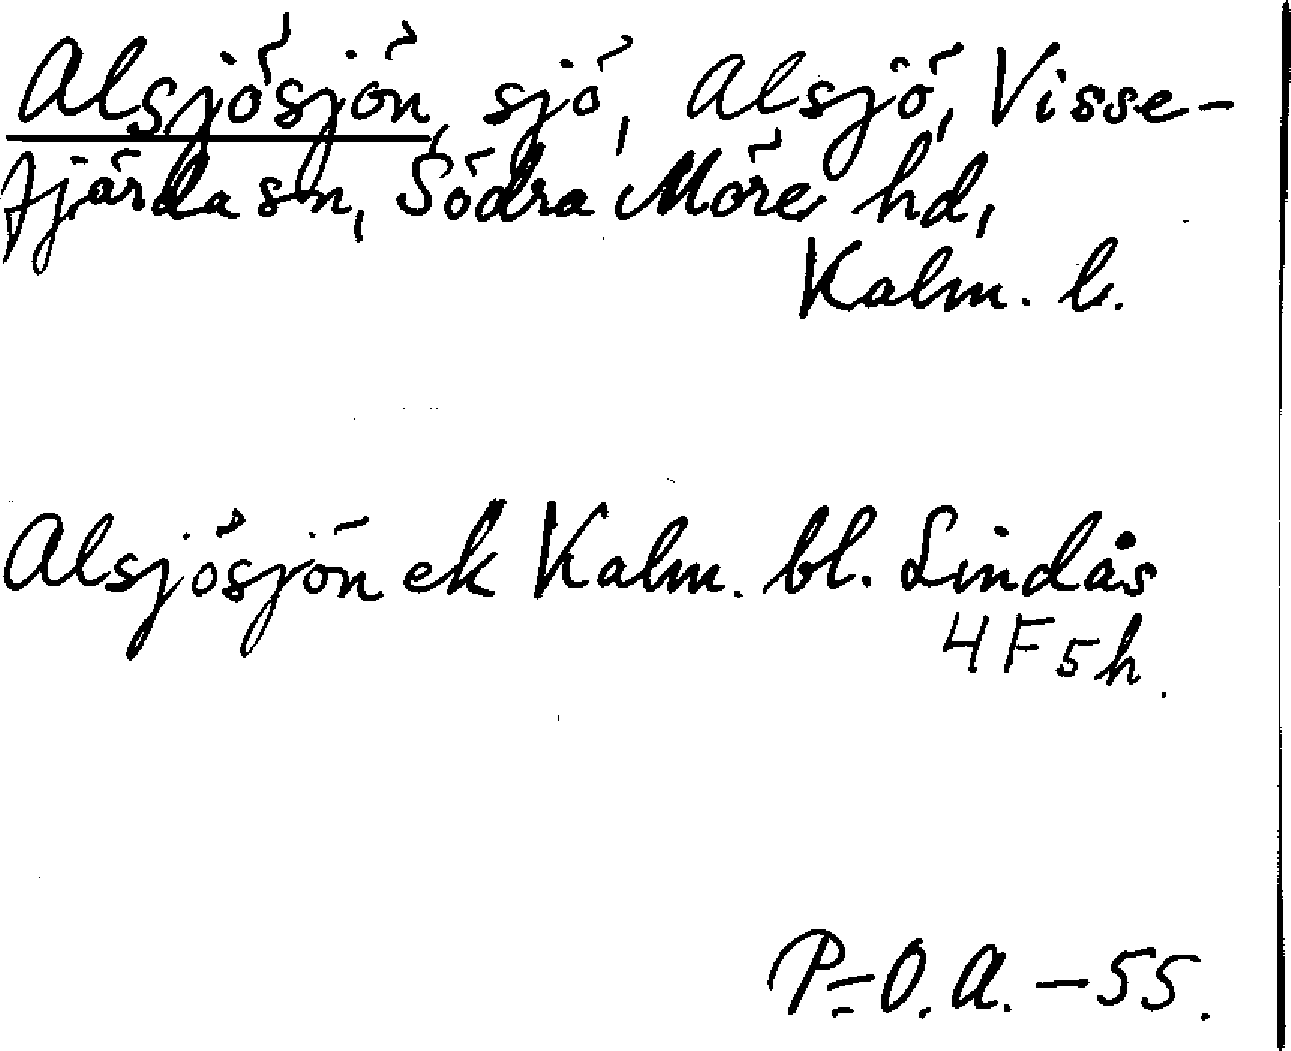 Alsjösjön, sjö, Alsjö, Visse-
fjärda sn, Södra Möre hd,
Kalm. l.
Alsjösjön ek Kalm. bl. Lindås
4F5h.
P-O.A. - 55.